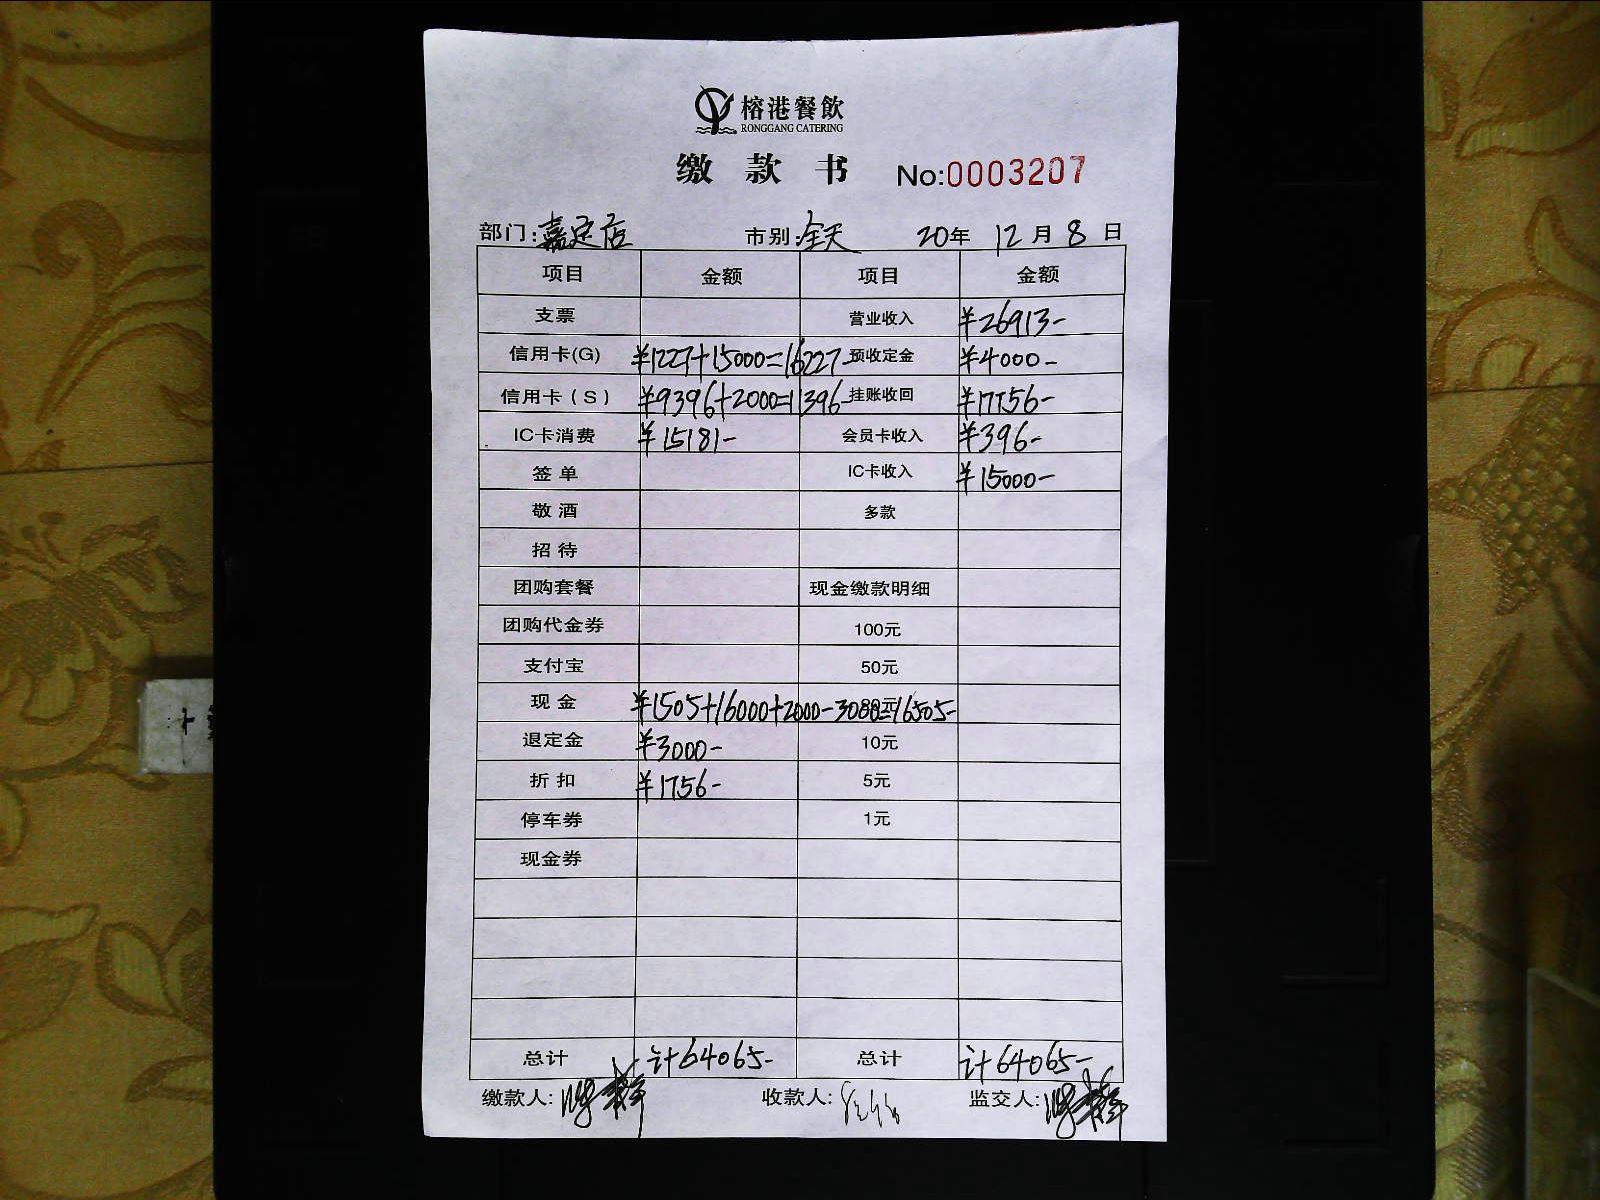 榕港餐飲
RONGGANG CATERING
缴款书 No:0003207
部门:嘉定店 市别:全天 20年 12月 8日
项目 金额 项目 金额
支票 营业收入 ¥26913-
信用卡(G) ¥1227+15000=16227- 预收定金 ¥4000-
信用卡(S) ¥9396+2000=11396- 挂账收回 ¥17756-
IC卡消费 ¥15181- 会员卡收入 ¥396-
签单 IC卡收入 ¥15000-
敬酒 多款
招待
团购套餐 现金缴款明细
团购代金券 100元
支付宝 50元
现金 ¥1505+16000+2000-3000=16505-
退定金 ¥3000- 10元
折扣 ¥1756- 5元
停车券 1元
现金券
总计 计64065- 总计 计64065-
缴款人: 收款人: 监交人: